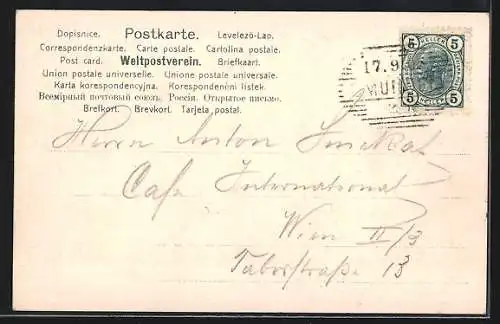 Dopisnice. Postkarte. Levelező-Lap.
Correspondenzkarte. Carte postale. Cartolina postale.
Post card. Weltpostverein. Briefkaart.
Union postale universelle. Unione postale universale.
Karta korespondencyjna. Korespondenčni listek.
Всемірный почтовый союзъ. Россія. Открытое письмо.
Brefkort. Brevkort. Tarjeta postal.
5 HELLER 5
5 HELLER 5
17.9
Herrn Anton Smekal
Cafe International
Wien II/3
Taborstraße 13